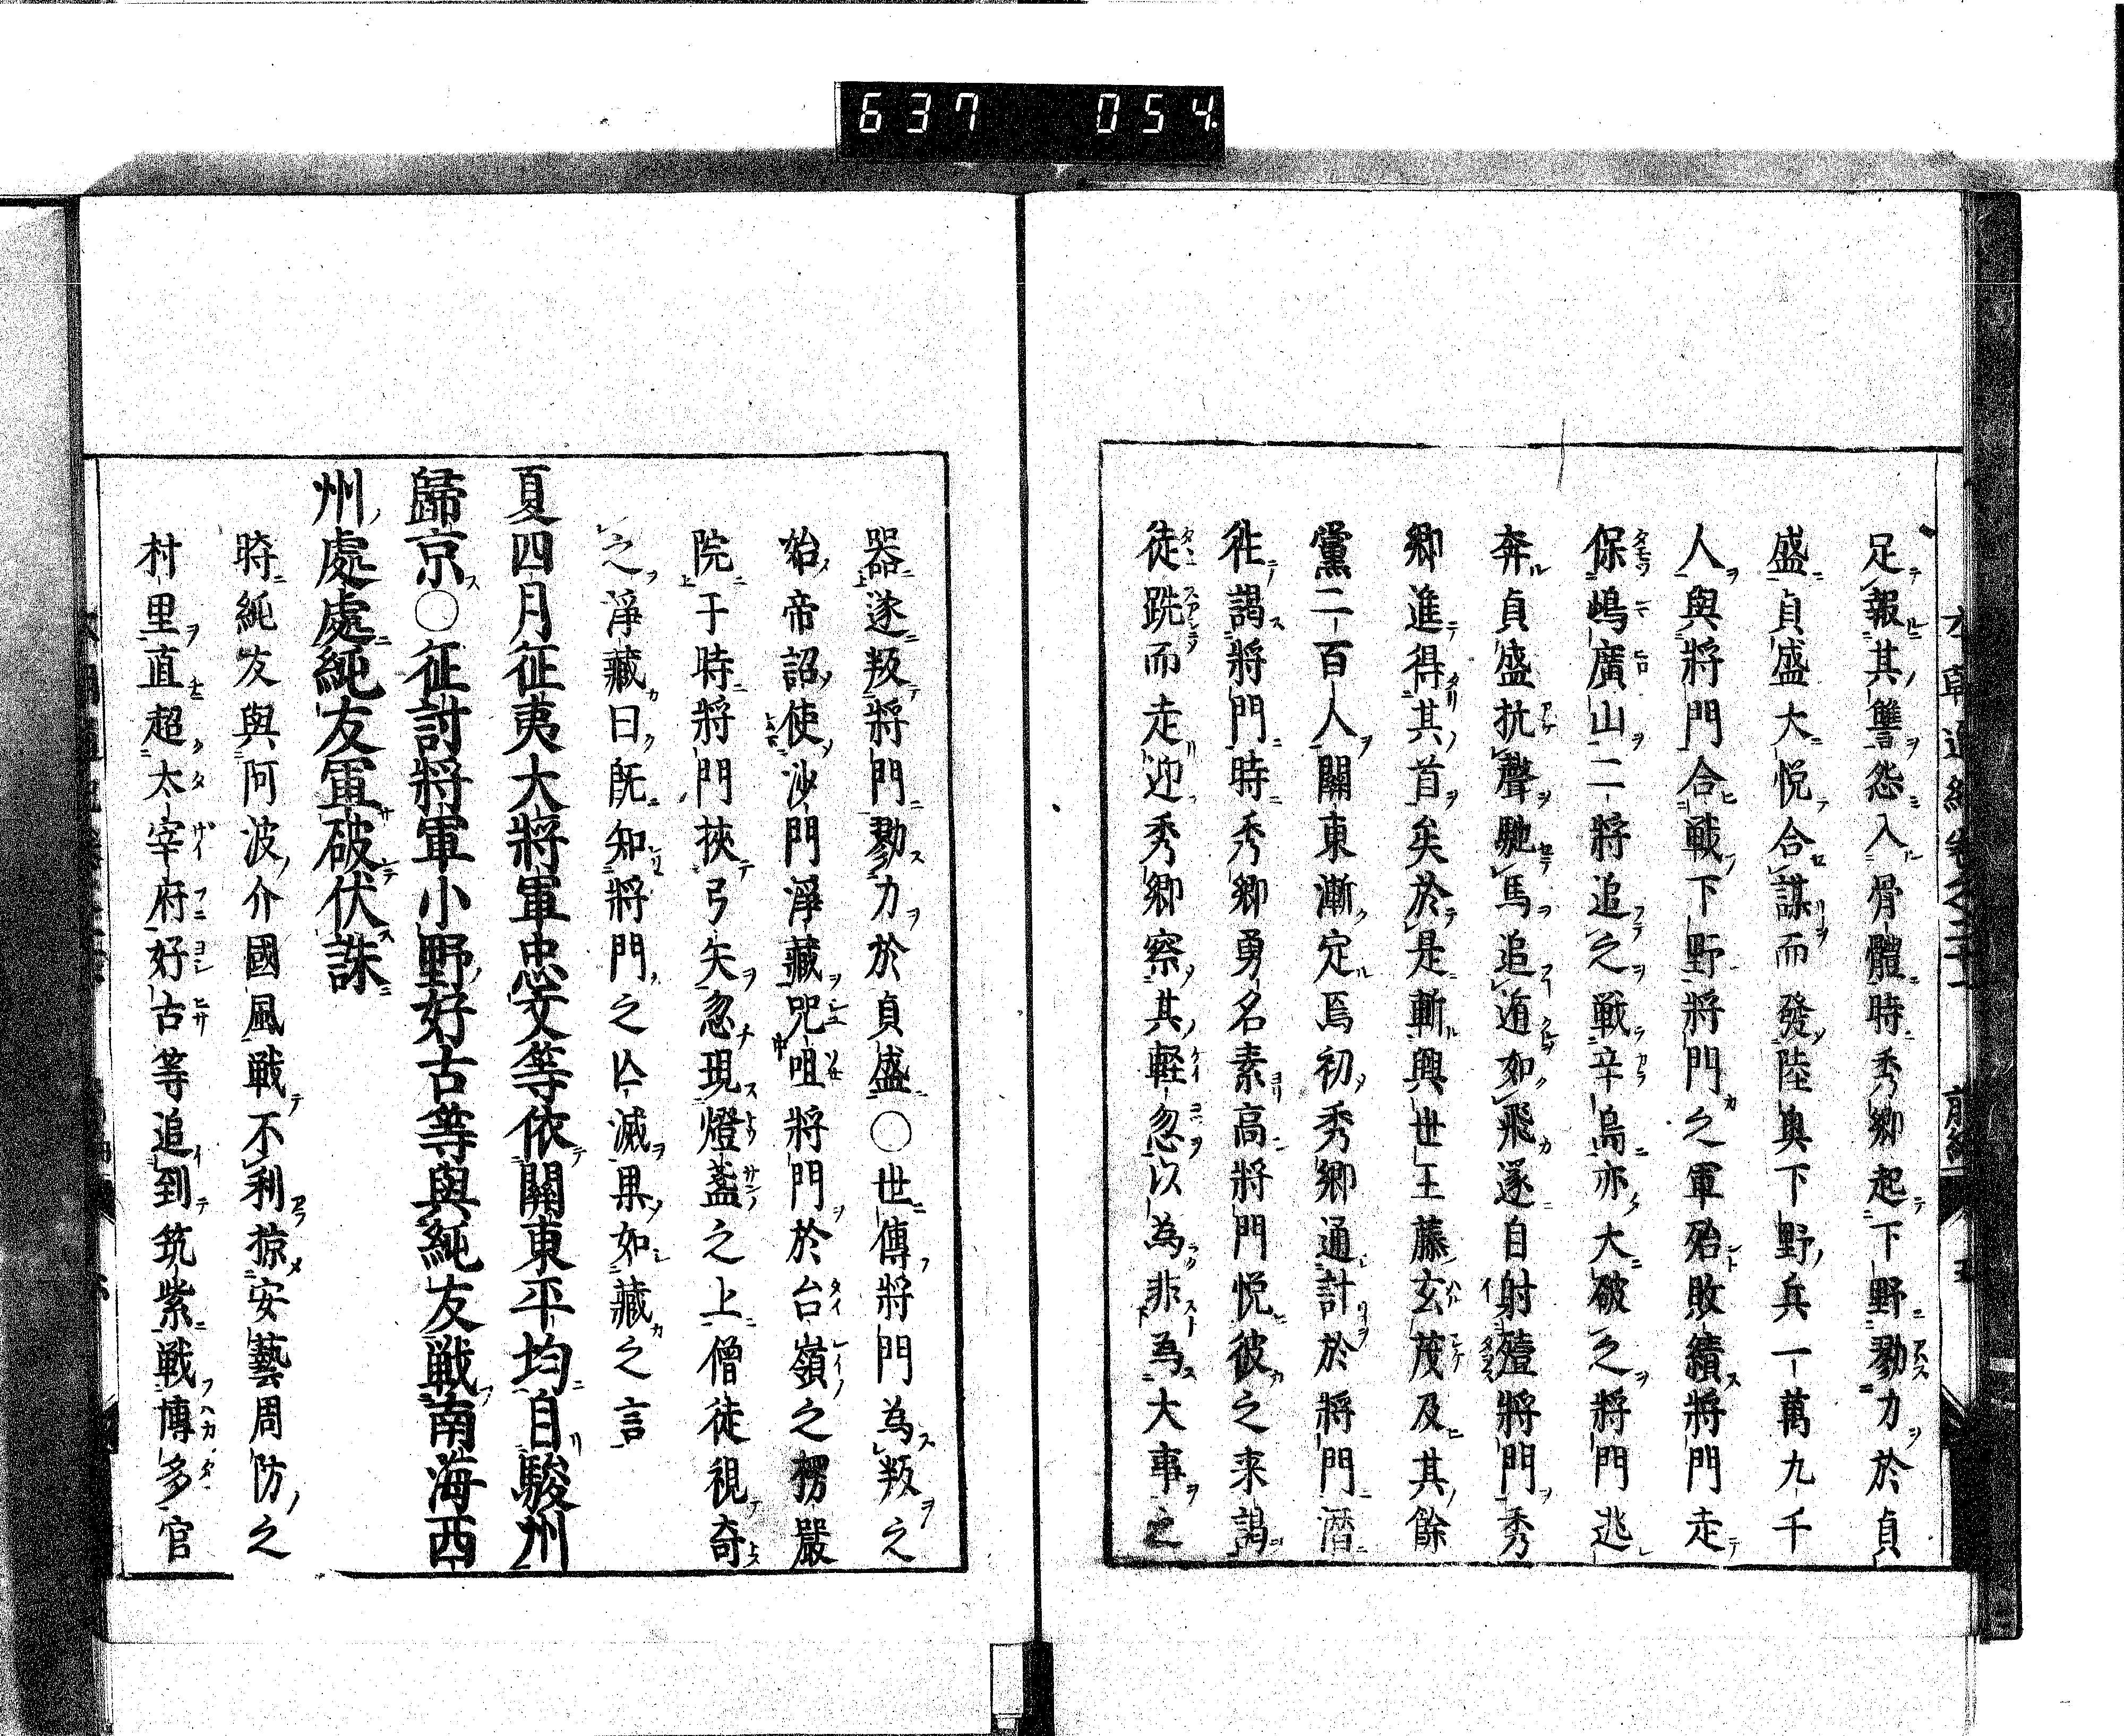 637 054
足報其讐怨入骨體時秀郷起下野勠力於貞
盛貞盛大悦合謀而發陸奥下野兵一萬九千
人與將門合戰下野將門之軍殆敗績將門走
保嶋廣山二將追之戰辛嶌亦大破之將門逃
奔貞盛抗聲馳馬追逌如飛遂自射殪將門秀
郷進得其首矣於是斬興世王藤玄茂及其餘
黨二百人關東漸定焉初秀郷通計於將門潛
徃謁將門時秀郷勇名素高將門悦彼之来謁
徒跣而走迎秀郷察其軽忽以為非為大事之
器遂叛將門勠力於貞盛○世傳將門為叛之
始帝詔使沙門淨藏咒咀將門於台嶺之楞嚴
院于時將門挾弓矢忽現燈盞之上僧徒視奇
之淨藏曰既知將門之亾滅果如藏之言
夏四月征夷大將軍忠文等依關東平均自駿州
歸京○征討將軍小野好古等與純友戰南海西
州處處純友軍破伏誅
時純友與阿波介國風戰不利掠安藝周防之
村里直超太宰府好古等追到筑紫戰博多官